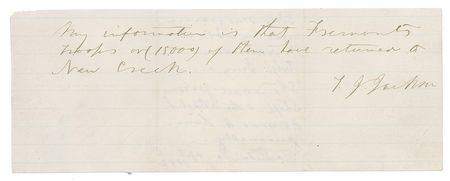 My information is that Fremont's
troops or (15000) of them have returned to
New Creek.
T. J. Jackson